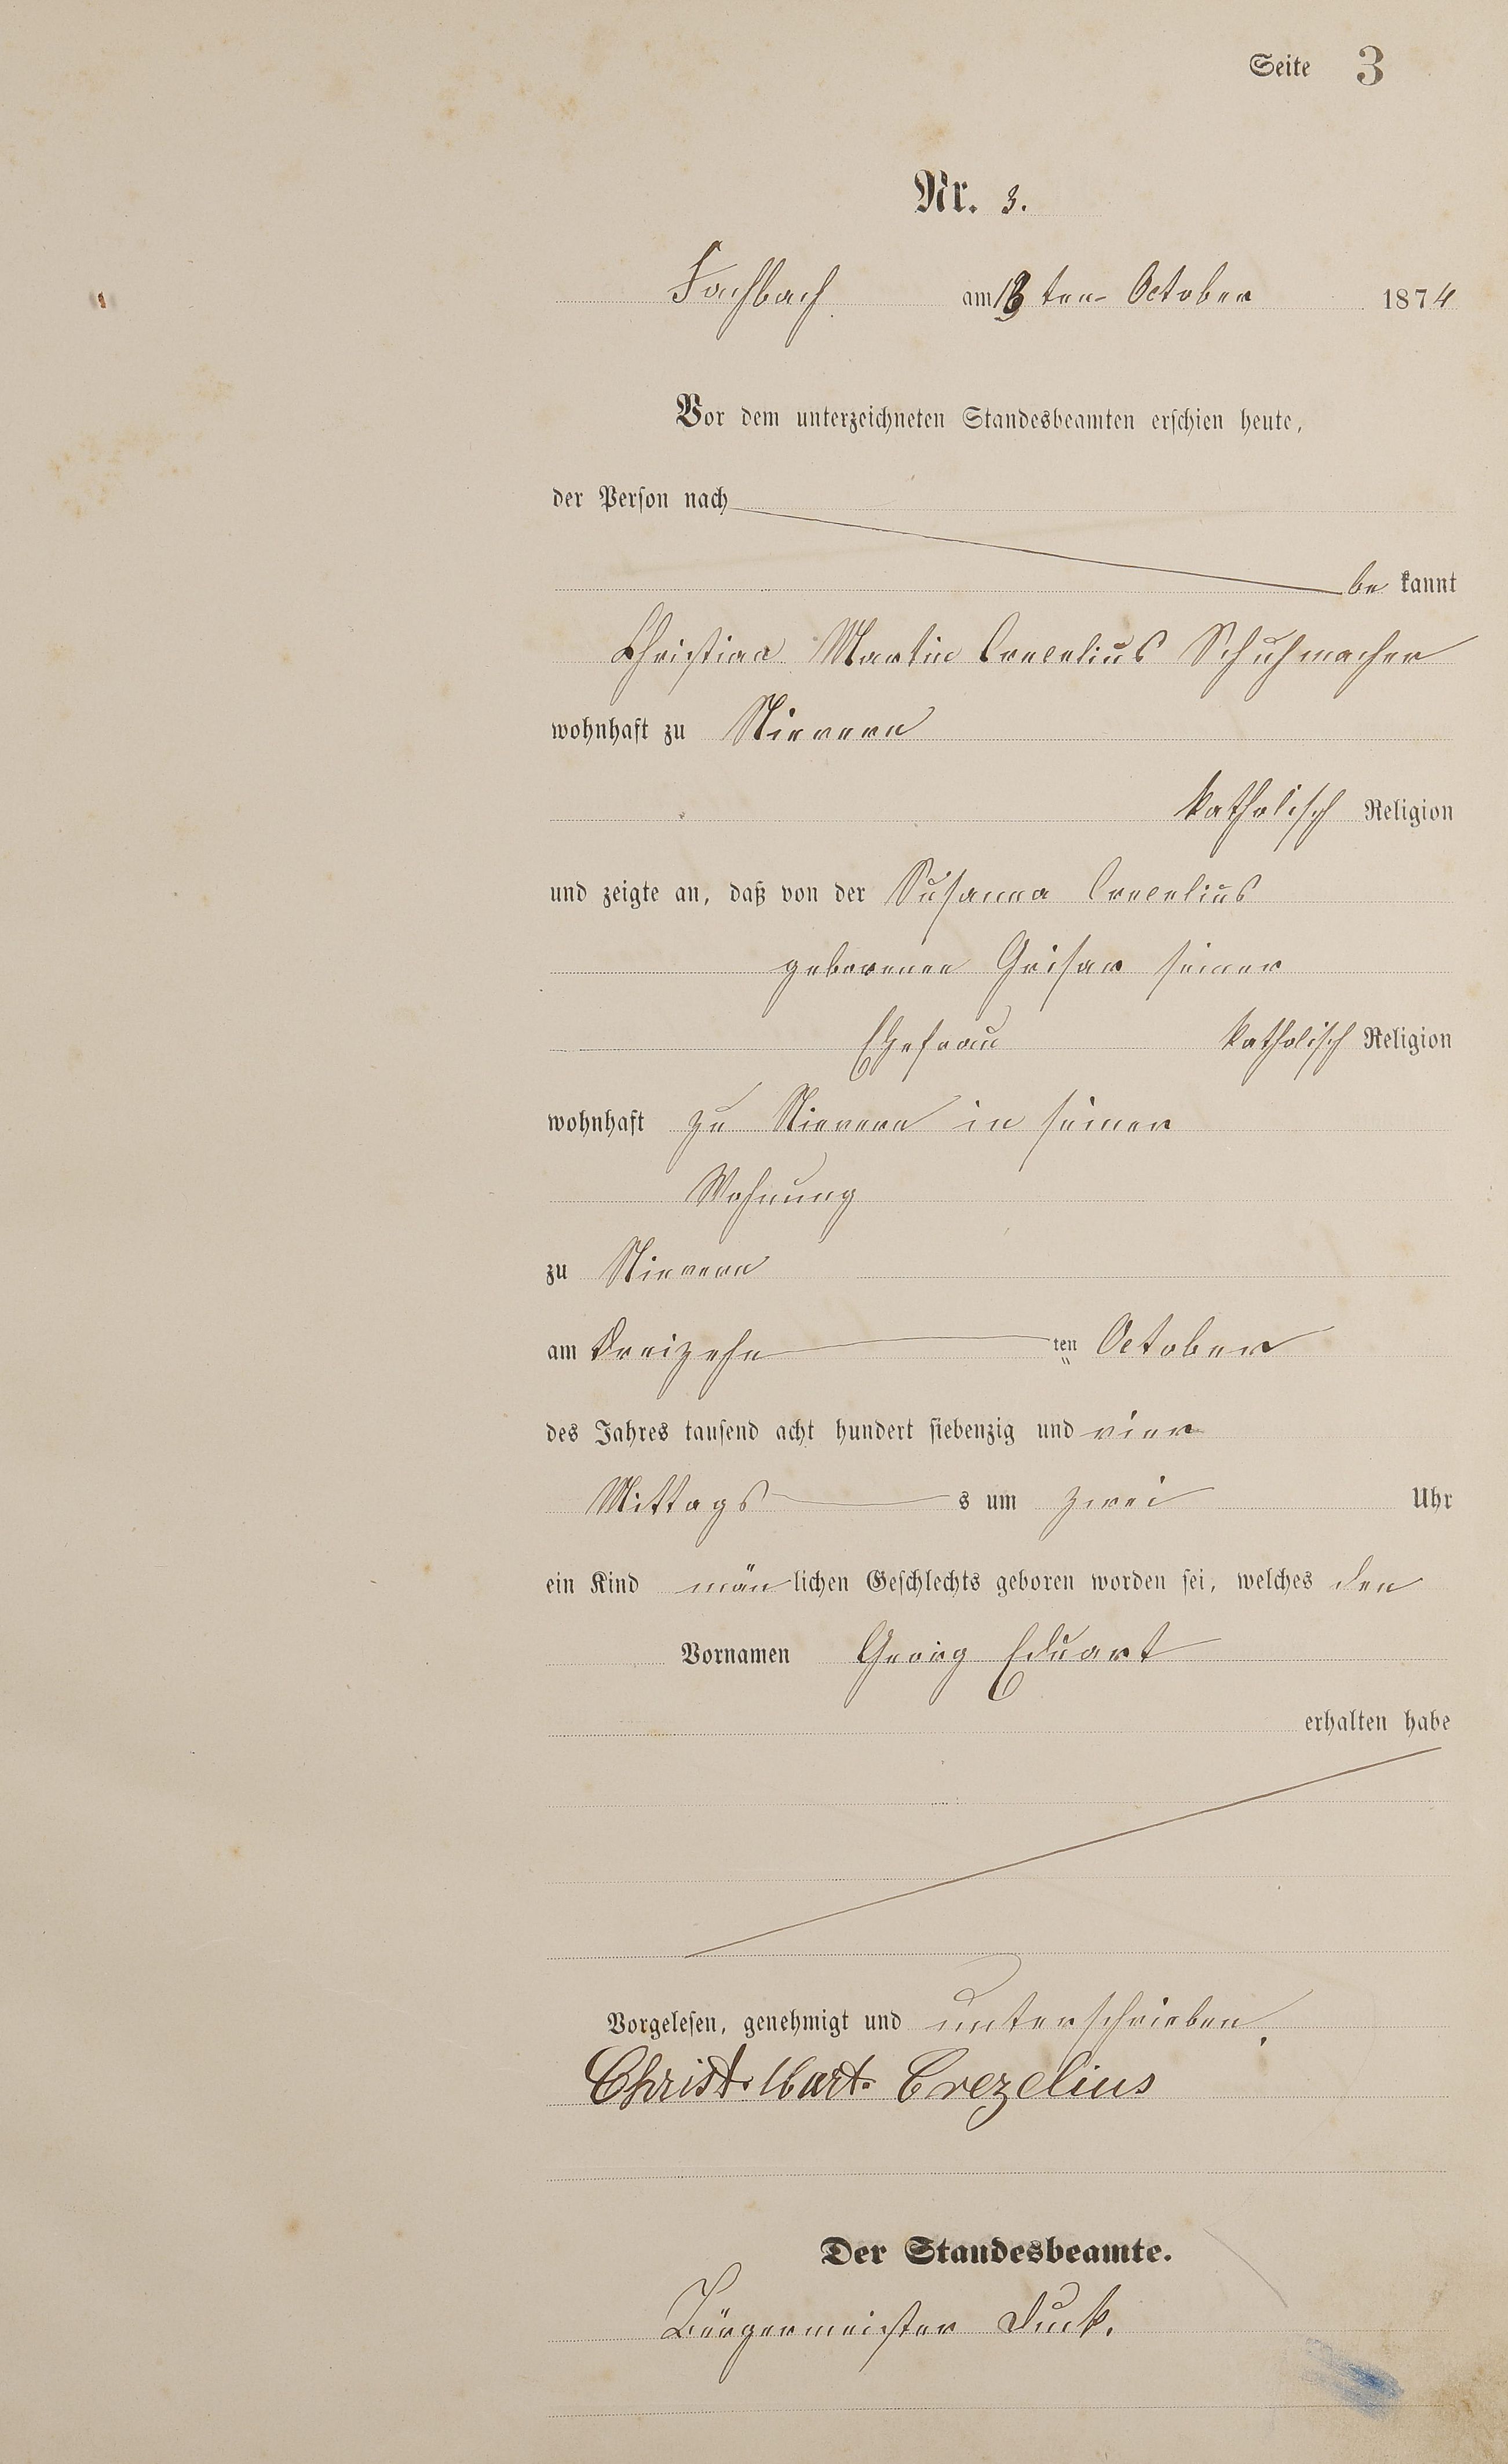 Seite 3
Nr. 3.
Fachbach am 13 ten October 1874
Vor dem unterzeichneten Standesbeamten erschien heute,
der Person nach
be kannt
Christian Martin Crecelius Schuhmacher
wohnhaft zu Nievern
katholisch Religion
und zeigte an, daß von der Susanna Crecelius
geborenen Grisar seiner
Ehefrau katholisch Religion
wohnhaft zu Nievern in seiner
Wohnung
zu Nievern
am dreizehn ten October
des Jahres tausend acht hundert siebenzig und vier
Mittags s um zwei Uhr
ein Kind män lichen Geschlechts geboren worden sei, welches den
Vornamen Georg Eduart
erhalten habe
Vorgelesen, genehmigt und unterschrieben.
Christ. Mart. Crezelius
Der Standesbeamte.
Bürgermeister Duck.